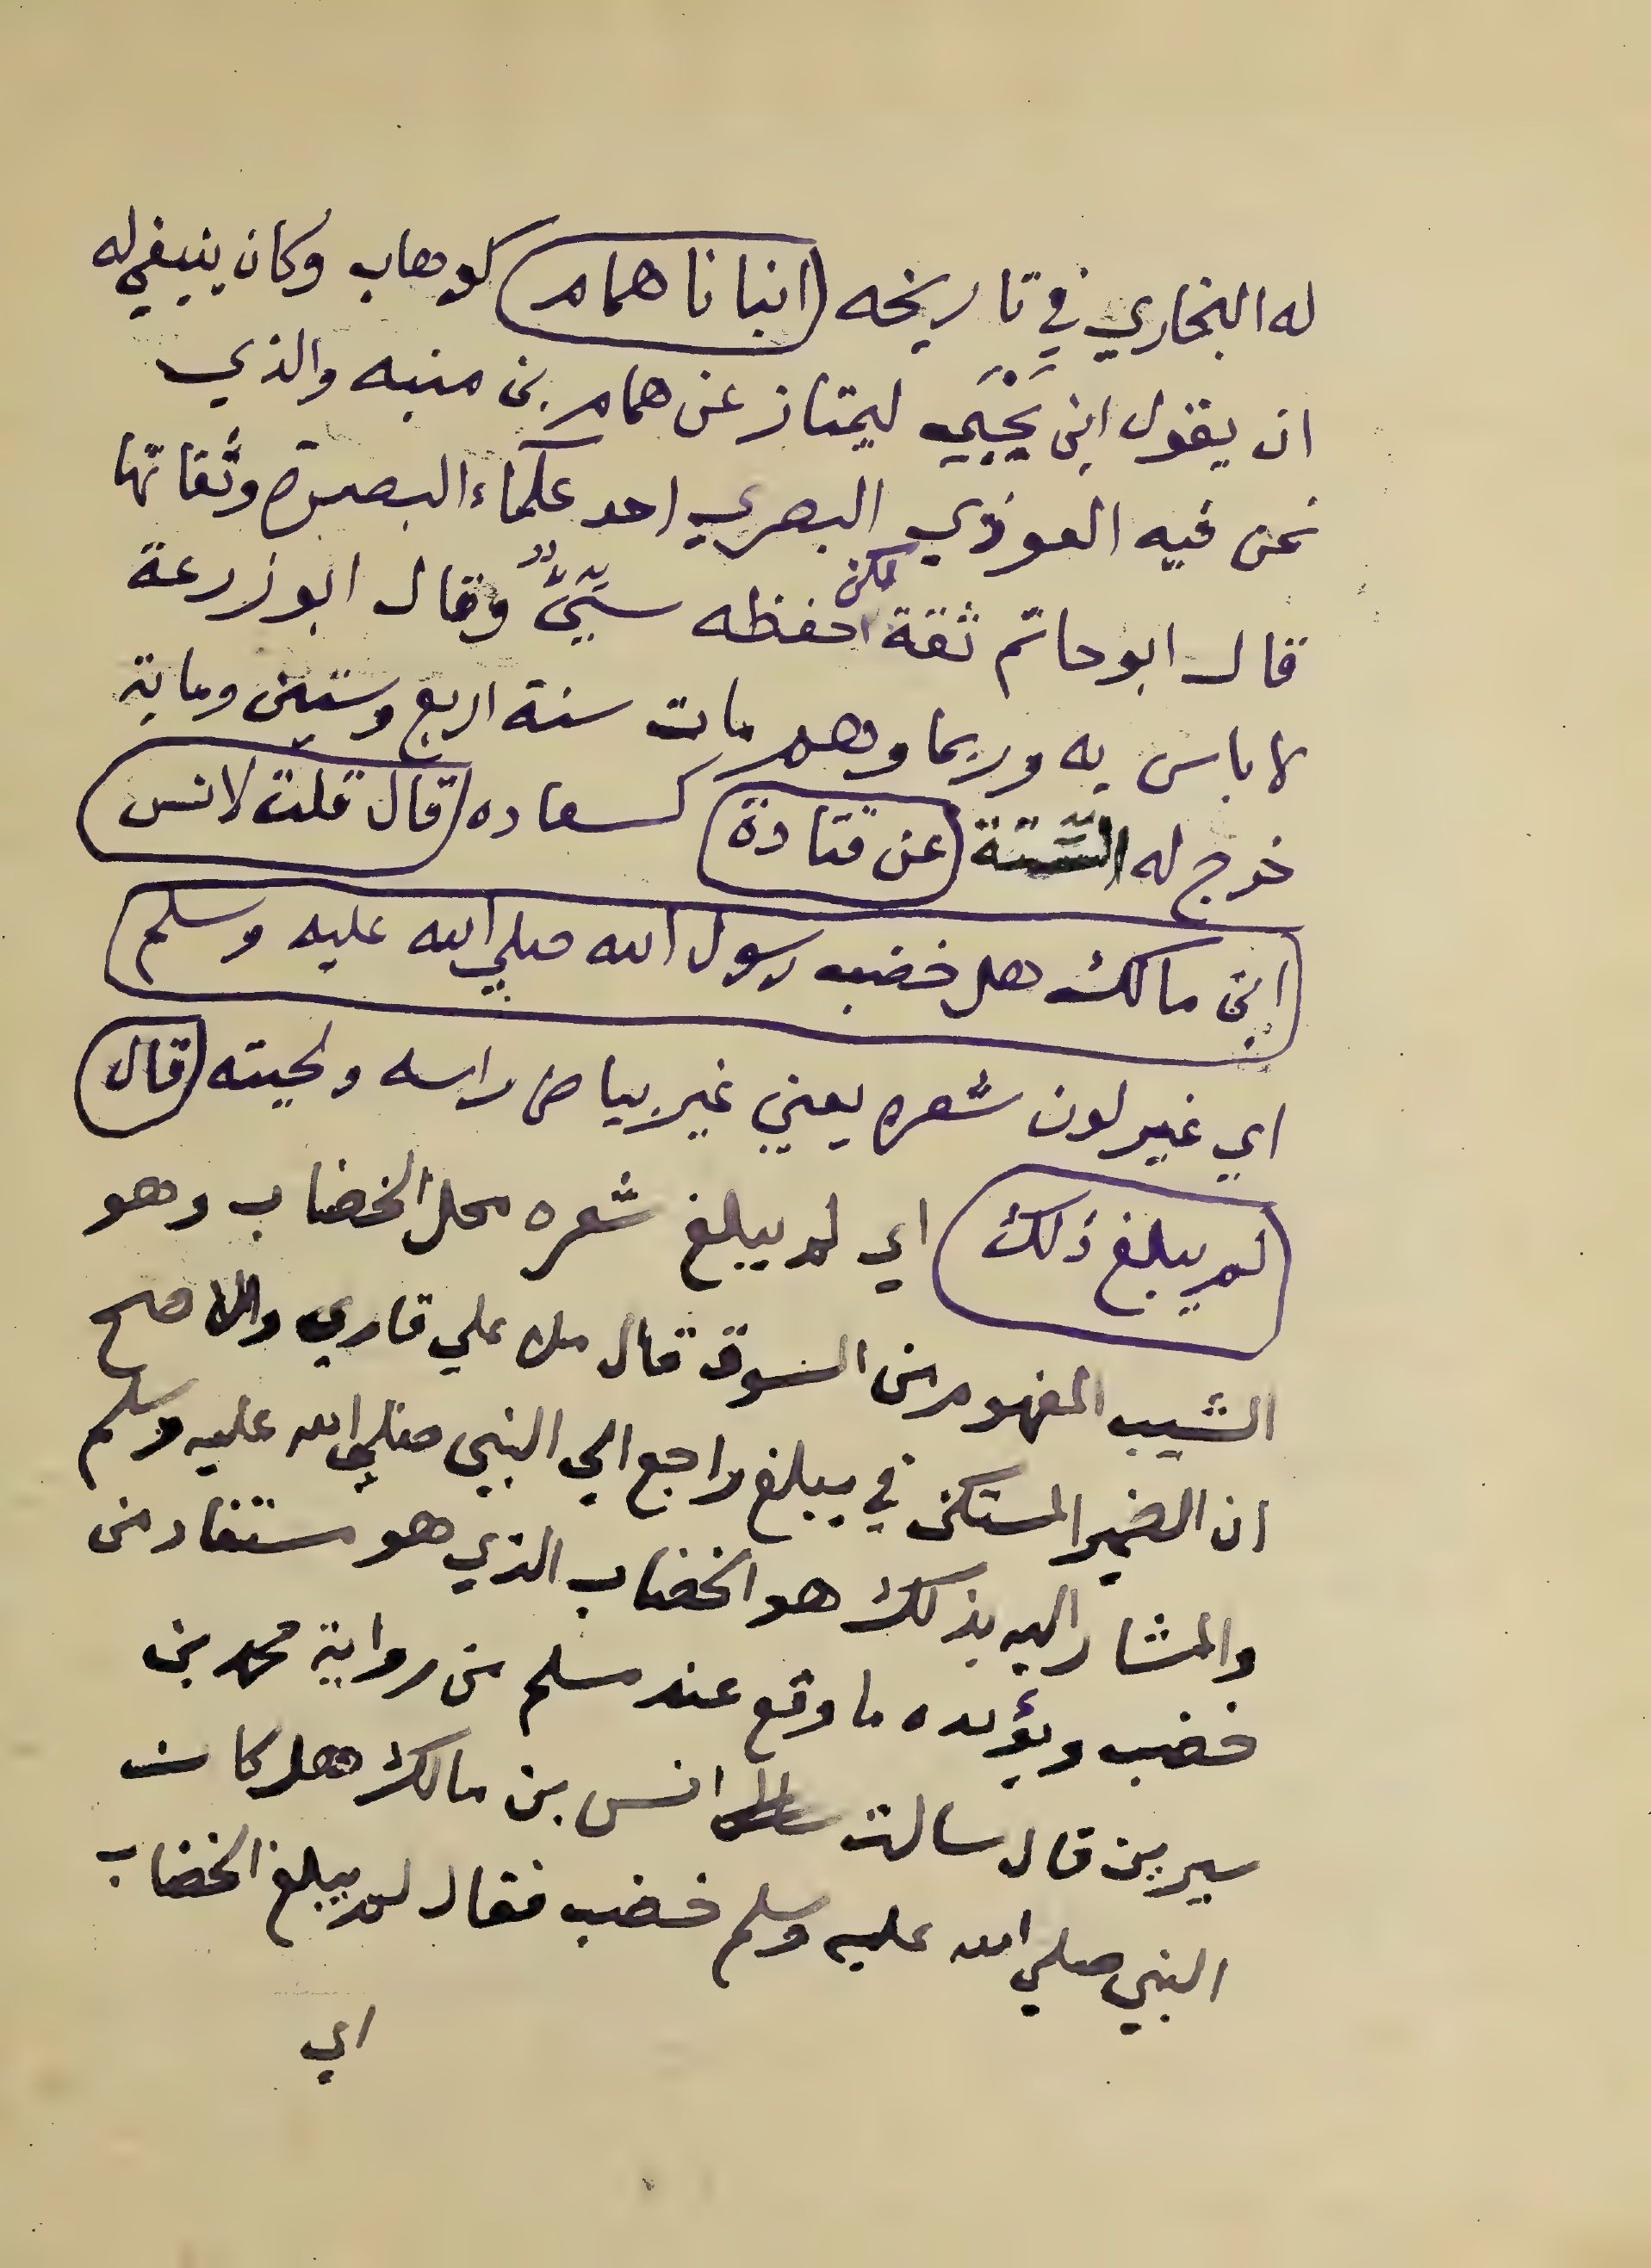 له البخاري في تاريخه انبانا همام كوهاب وكان ينبغي له
ان يقول ابن يَحْيَي ليمتاز عن همام بن منبه والذي
نحن فيه العوذي البصري احد علماء البصرة وثقاتها
قال ابو حاتم ثقة لكن حفظه سيّئٌ وقال ابو زرعة
لا باس به وربما وهم مات سنة اربع وستين وماية
خرج له السّتة عن قتادة كسعاده قال قلت لانس
ابن مالك هل خضب رسول الله صلي الله عليه وسلم
اي غير لون شعره يعني غير بياض راسه ولحيته قال
لم يبلغ ذلك اي لم يبلغ شعره محل الخضاب وهو
الشيب المفهوم من السوق قال ملا علي قاري والاصح
ان الضمير المستكن في يبلغ راجع الي النبي صلي الله عليه وسلم
والمشار اليه بذلك هو الخضاب الذي هو مستفاد من
خضب ويؤيده ما وقع عند مسلم من رواية محمد بن
سيرين قال سالت انس بن مالك هل كان
النبي صلي الله عليه وسلم خضب فقال لم يبلغ الخضاب
اي